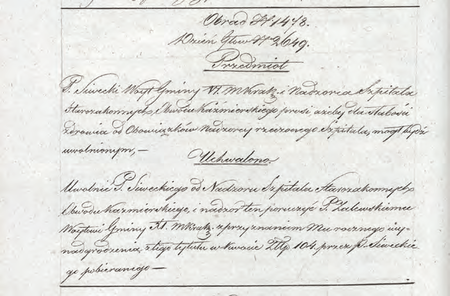 Obrad Nº 1478.
Dzień. Głow. Nº 2649.
Przedmiot
P. Siwecki Wóyt Gminy VI. M. Krak. i Nadzorca Szpitala
Starozakonnych Obwodu Kazimierskiego prosi, ażeby dla słabości
zdrowia od Obowiązków Nadzorcy rzeczonego Szpitala, mógł bydź
uwolnionym, —
Uchwalono
Uwolnić P. Siweckiego od Nadzoru Szpitala Starozakonnych
Obwodu Kazimierskiego, i nadzór ten poruczyć P. Zalewskiemu
Wóytowi Gminy XI. M. Krak. z przyznaniem Mu rocznego wy-
nadgrodzenia, z tego tytułu w kwocie Złp. 104. przez P. Siweckie
go pobieranego —